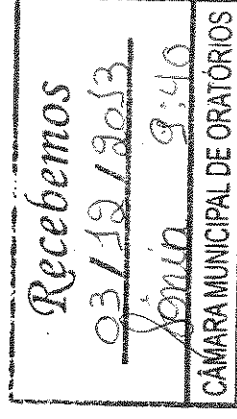 Recebemos
03/12/2013
Sônia 9:40
CÂMARA MUNICIPAL DE ORATÓRIOS